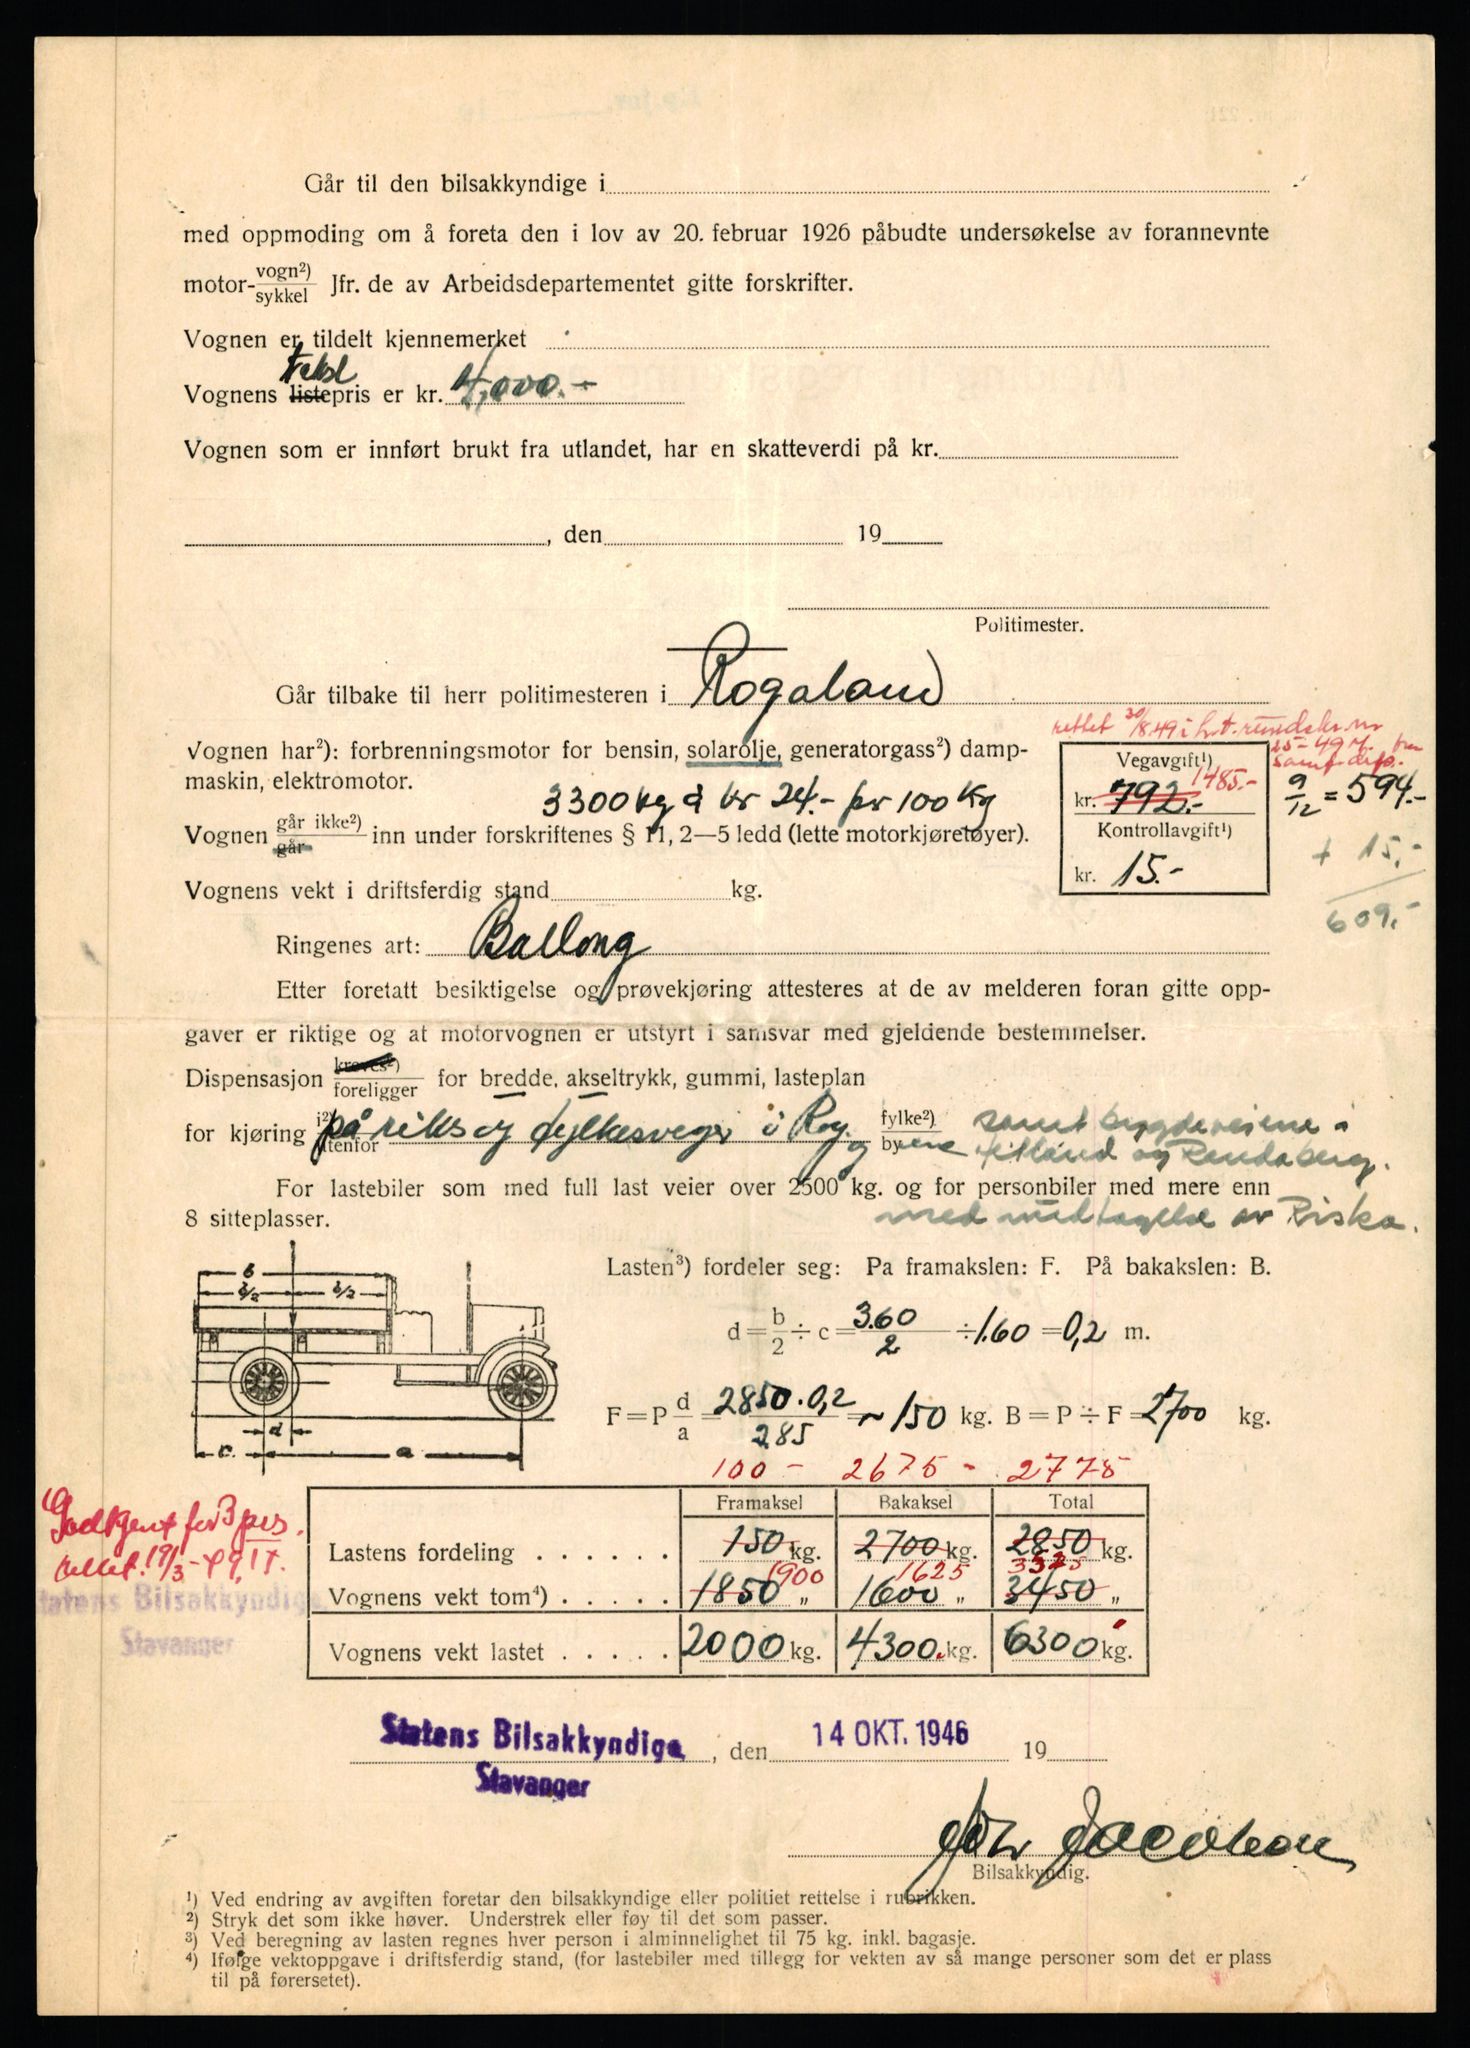 Går til den bilsakkyndige i
med oppmoding om å foreta den i lov av 20. februar 1926 påbudte undersøkelse av forannevnte
motor- vogn²) sykkel Jfr. de av Arbeidsdepartementet gitte forskrifter.
Vognen er tildelt kjennemerket
takst
Vognens listepris er kr. 4,000.-
Vognen som er innført brukt fra utlandet, har en skatteverdi på kr.
, den 19
Politimester.
Går tilbake til herr politimesteren i Rogaland
rettet 30/8.49 i h.t. rundskr. nr
25-49 fra
Samf. dep.
Vognen har²): forbrenningsmotor for bensin, solarolje, generatorgass²) damp-
maskin, elektromotor.
3300 kg à kr 24.- pr 100 kg
Vegavgift¹)
1485.-
kr. 792.-
9/12 = 594.-
Vognen går ikke²) går inn under forskriftenes § 11, 2—5 ledd (lette motorkjøretøyer).
Kontrollavgift¹)
kr. 15.-
+ 15,-
609,-
Vognens vekt i driftsferdig stand kg.
Ringenes art: Ballong
Etter foretatt besiktigelse og prøvekjøring attesteres at de av melderen foran gitte opp-
gaver er riktige og at motorvognen er utstyrt i samsvar med gjeldende bestemmelser.
Dispensasjon kreves²) foreligger for bredde, akseltrykk, gummi, lasteplan
for kjøring i²) utenfor på riks og fylkesveger i Rog. fylke²) og byene samt bygdeveiene i
Hetland og Randaberg.
For lastebiler som med full last veier over 2500 kg. og for personbiler med mere enn
8 sitteplasser.
med undtagelse av Riska.
Lasten³) fordeler seg: Pa framakslen: F. På bakakslen: B.
b
b/2 b/2
d = b/2 ÷ c = 3.60/2 ÷ 1.60 = 0,2 m.
F = P d/a = 2850 . 0,2 / 285 = ~ 150 kg. B = P ÷ F = 2700 kg.
d
c. a
100 - 2675 - 2775
Framaksel Bakaksel Total
Godkjent for 3 pers.
rettet 19/3-49,
Lastens fordeling . . . . . . 150 kg. 2700 kg. 2850 kg.
1900 1625 3525
Vognens vekt tom⁴) . . . . . 1850 „ 1600 „ 3450 „
Statens Bilsakkyndige
Stavanger
Vognens vekt lastet . . . . . 2000 kg. 4300 kg. 6300 kg.
Statens Bilsakkyndige, den 14 OKT. 1946 19
Stavanger
Jacobsen
Bilsakkyndig.
¹) Ved endring av avgiften foretar den bilsakkyndige eller politiet rettelse i rubrikken.
²) Stryk det som ikke høver. Understrek eller føy til det som passer.
³) Ved beregning av lasten regnes hver person i alminnelighet til 75 kg. inkl. bagasje.
⁴) Ifølge vektoppgave i driftsferdig stand, (for lastebiler med tillegg for vekten av så mange personer som det er plass
til på førersetet).